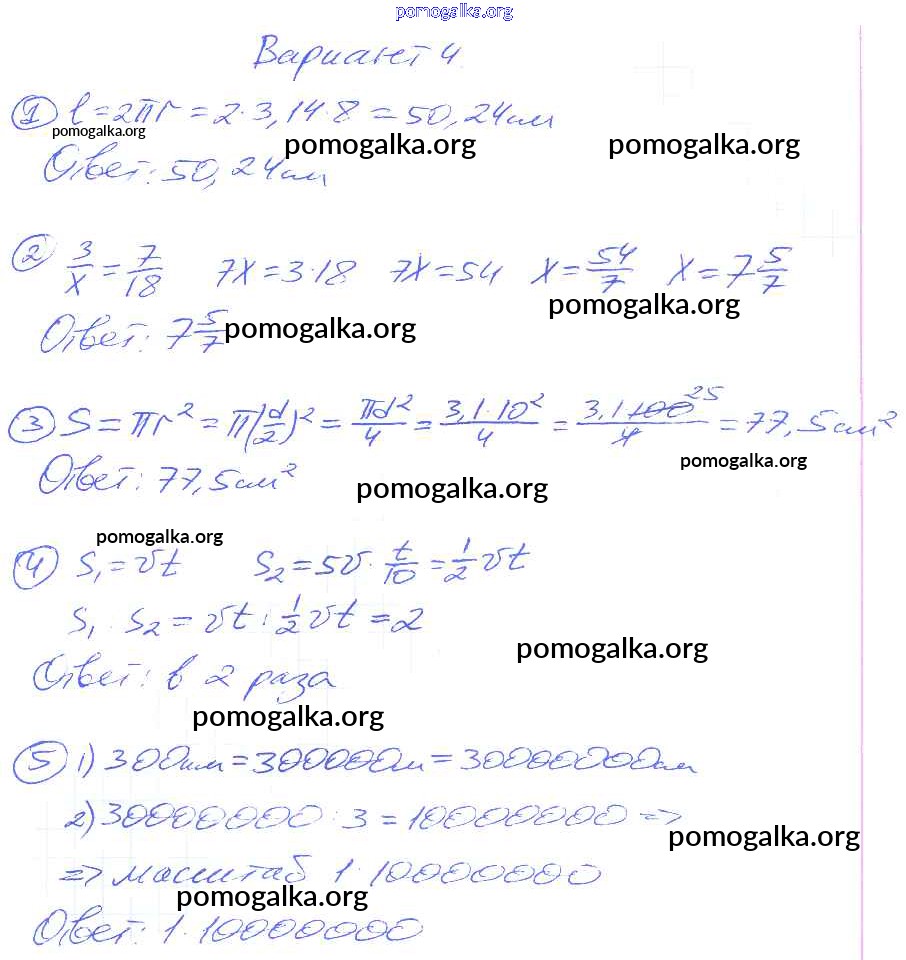 pomogalka.org
Вариант 4.
① l = 2πr = 2·3,14·8 = 50,24см
pomogalka.org pomogalka.org pomogalka.org
Ответ: 50,24см
② 3/x = 7/18 7x = 3·18 7x = 54 x = 54/7 x = 7 5/7
pomogalka.org
Ответ: 7 5/7 pomogalka.org
③ S = πr² = π(d/2)² = πd²/4 = 3,1·10²/4 = 3,1·100 25/4 = 77,5см²
pomogalka.org
Ответ: 77,5см² pomogalka.org
pomogalka.org
④ S₁ = vt S₂ = 5v · t/10 = 1/2 vt
S₁ : S₂ = vt : 1/2 vt = 2
pomogalka.org
Ответ: в 2 раза
pomogalka.org
⑤ 1) 300км = 300000м = 30000000см
2) 30000000 : 3 = 10000000 =>
pomogalka.org
=> масштаб 1:10000000
pomogalka.org
Ответ: 1:10000000